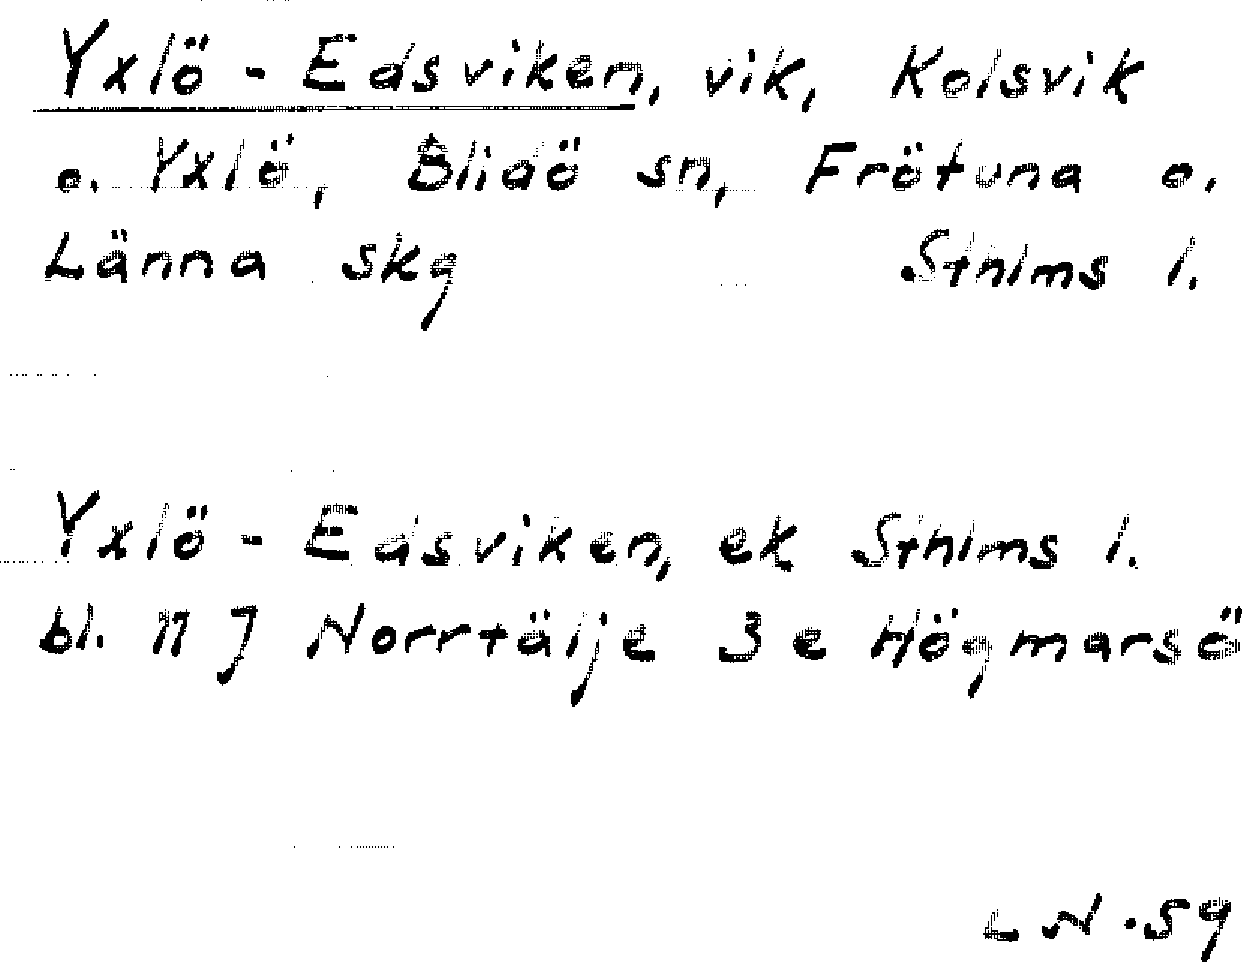 Yxlö - Edsviken, vik, Kolsvik
o. Yxlö, Blidö sn, Frötuna o.
Länna skg Sthlms l.
Yxlö - Edsviken, ek Sthlms l.
bl. 11 J Norrtälje 3 e Högmarsö
L N . 59